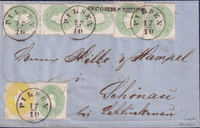 PILSEN
17
10
PILSEN
17
10
PILSEN
17
10
RECOMMANDIRT
Herrn Hille & Hampel
Schönau
PILSEN
17
10
PILSEN
17
10
bei